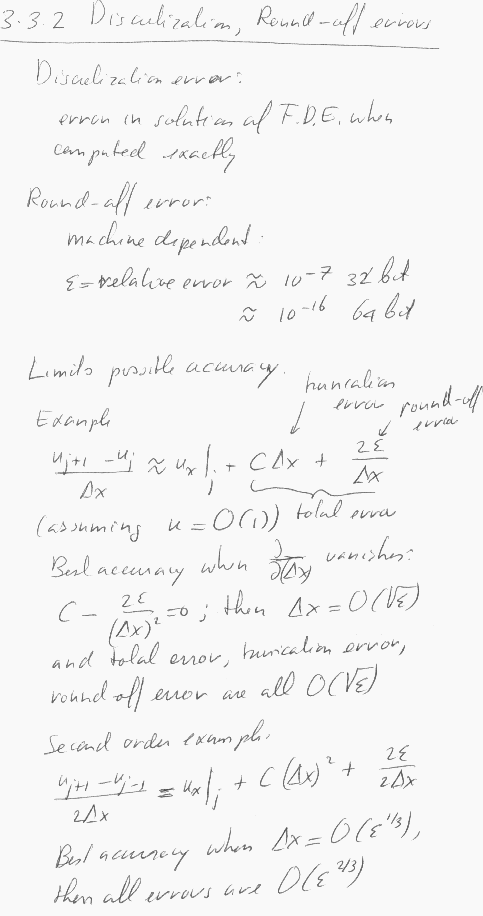 3.3.2 Discretization, Round-off errors
Discretization error:
error in solution of F.D.E. when
computed exactly
Round-off error:
machine dependent:
ε = relative error ≈ 10^-7 32 bit
≈ 10^-16 64 bit
Limits possible accuracy.
truncation error
round-off error
Example
(u_{j+1} - u_j)/Δx ≈ u_x|_j + CΔx + 2ε/Δx
(assuming u = O(1)) total error
Best accuracy when ∂/∂(Δx) vanishes:
C - 2ε/(Δx)^2 = 0; then Δx = O(√ε)
and total error, truncation error,
round off error are all O(√ε)
Second order example.
(u_{j+1} - u_{j-1})/2Δx = u_x|_j + C(Δx)^2 + 2ε/2Δx
Best accuracy when Δx = O(ε^{1/3}),
then all errors are O(ε^{2/3})